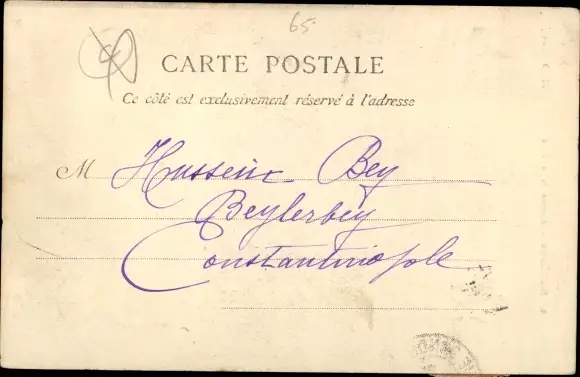 65
CARTE POSTALE
Ce côté est exclusivement réservé à l'adresse
M Hussein Bey
Beylerbey
Constantinople